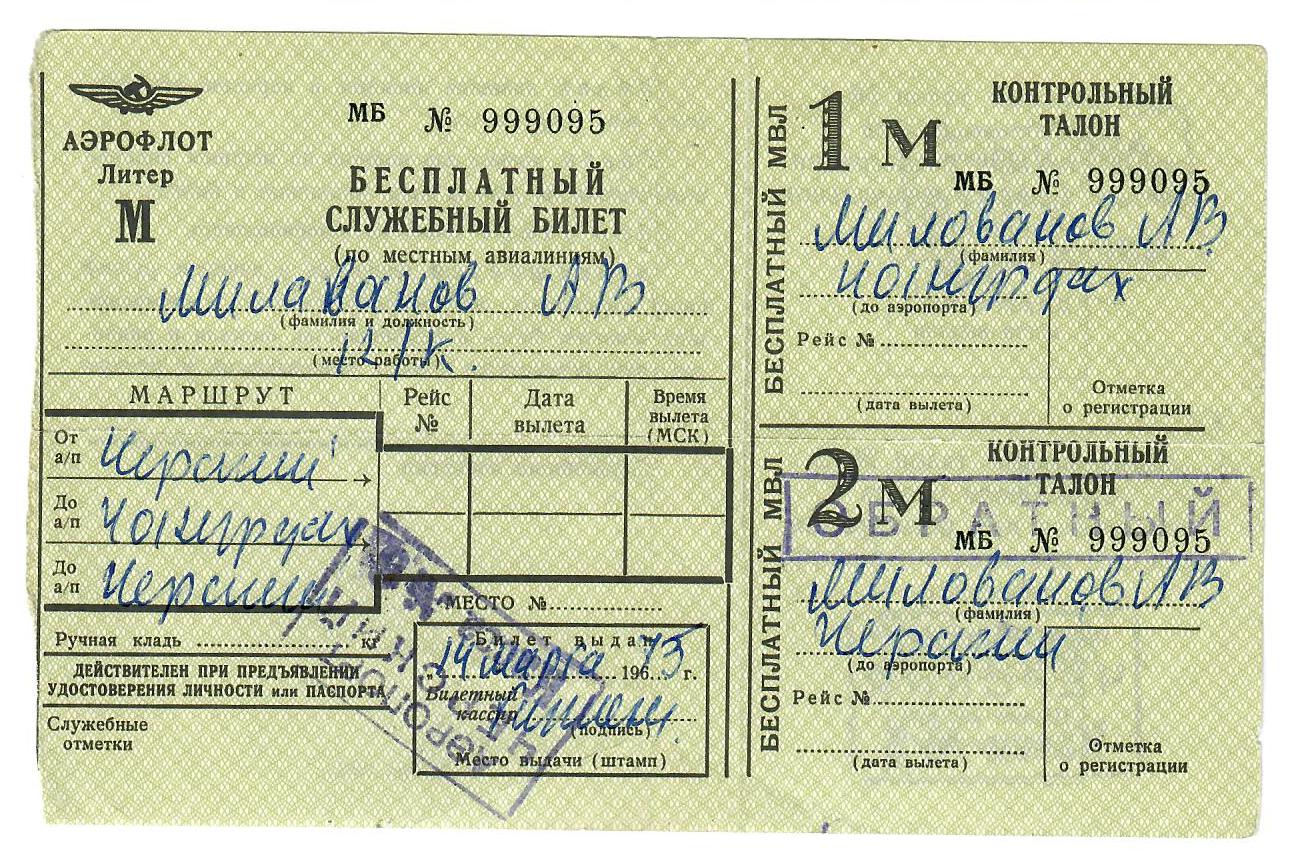 АЭРОФЛОТ
Литер
М
МБ № 999095
БЕСПЛАТНЫЙ
СЛУЖЕБНЫЙ БИЛЕТ
(по местным авиалиниям)
Милаванов АВ
(фамилия и должность)
(место работы)
МАРШРУТ
Рейс №
Дата вылета
Время вылета (МСК)
От а/п Черский
До а/п Чокурдах
До а/п Черский
МЕСТО №
Ручная кладь кг
ДЕЙСТВИТЕЛЕН ПРИ ПРЕДЪЯВЛЕНИИ
УДОСТОВЕРЕНИЯ ЛИЧНОСТИ или ПАСПОРТА
Служебные
отметки
Билет выдан
14 марта 196 75 г.
Билетный
кассир
(подпись)
Место выдачи (штамп)
АЭРОПОРТ
ЧЕРСКИЙ
БЕСПЛАТНЫЙ МВЛ
1 М
КОНТРОЛЬНЫЙ
ТАЛОН
МБ № 999095
Милованов АВ
(фамилия)
Чокурдах
(до аэропорта)
Рейс №
(дата вылета)
Отметка
о регистрации
БЕСПЛАТНЫЙ МВЛ
2 М
КОНТРОЛЬНЫЙ
ТАЛОН
ОБРАТНЫЙ
МБ № 999095
Милованов АВ
(фамилия)
Черский
(до аэропорта)
Рейс №
(дата вылета)
Отметка
о регистрации